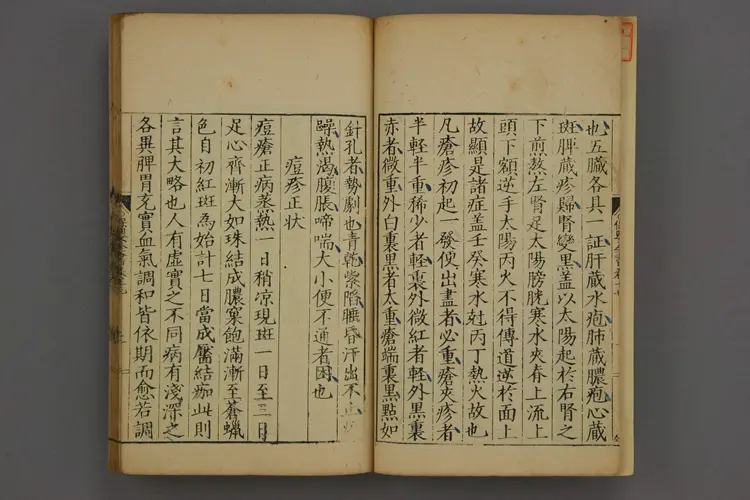 也五臟各具一証肝蔵水疱肺蔵膿疱心蔵
斑脾蔵疹歸腎變黒蓋以太陽起於右腎之
下煎熬左腎足太陽膀胱寒水夾脊上流上
頭下額逆手太陽丙火不得傳道逆於面上
故顯是諸症盖壬癸寒水尅丙丁熱火故也
凡瘡疹初起一發便出盡者必重瘡夾疹者
半軽半重稀少者軽裏外微紅者軽外黒裏
赤者微重外白裏黒者太重瘡端裏黒點如
針孔者勢劇也青乾紫陷睡昏汗出不止
躁熱渴腹脹啼喘大小便不通者困也
痘疹正状
痘瘡正病蒸熱一日稍凉現斑一日至三日
足心齊漸大如珠結成膿窠飽滿漸至蒼蠟
色自初紅斑為始計七日當成靨結痂此則
言其大略也人有虚實之不同病有淺深之
各異脾胃充實血氣調和皆依期而愈若調